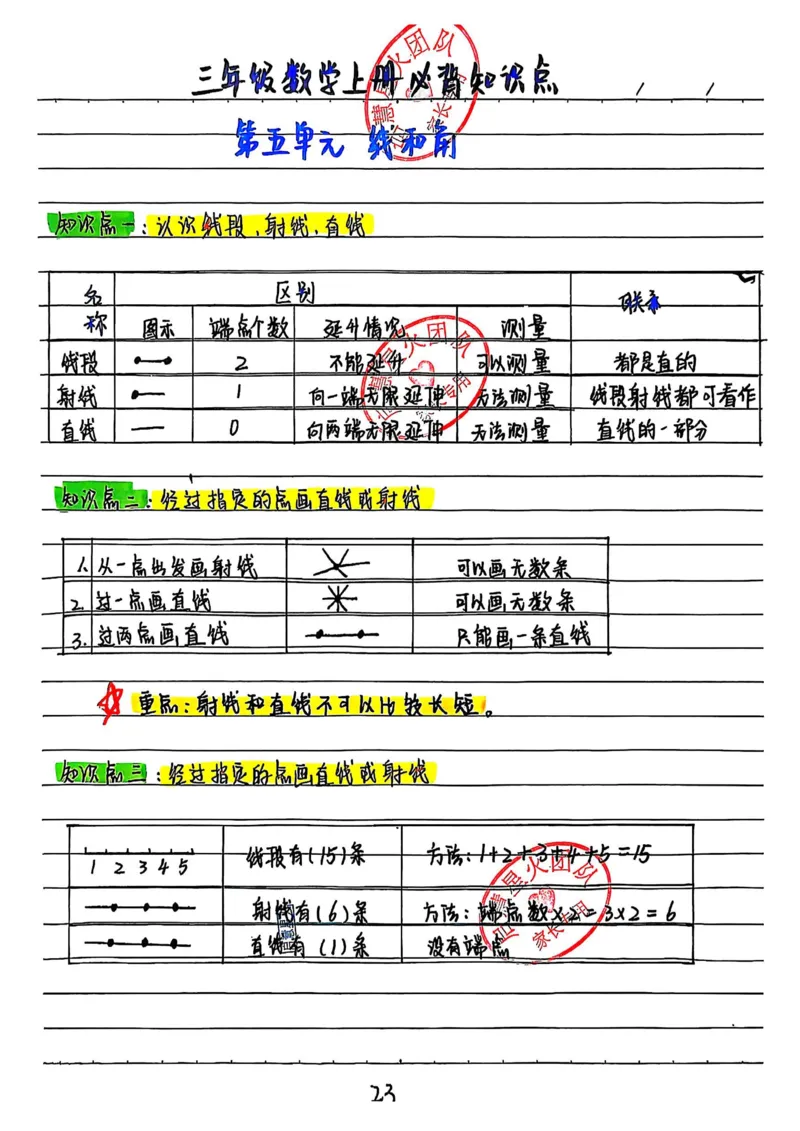 三年级数学上册必背知识点
第五单元 线和角
知识点一:认识线段、射线、直线
名称 区别 联系
图示 端点个数 延升情况 测量
线段 2 不能延升 可以测量 都是直的
射线 1 向一端无限延伸 无法测量 线段射线都可看作
直线 0 向两端无限延伸 无法测量 直线的一部分
知识点二:经过指定的点画直线或射线
1. 从一点出发画射线 可以画无数条
2. 过一点画直线 可以画无数条
3. 过两点画直线 只能画一条直线
重点:射线和直线不可以比较长短。
知识点三:经过指定的点画直线或射线
1 2 3 4 5 线段有(15)条 方法:1+2+3+4+5=15
射线有(6)条 方法:端点数×2=3×2=6
直线有(1)条 没有端点
火团队
家长专用
23